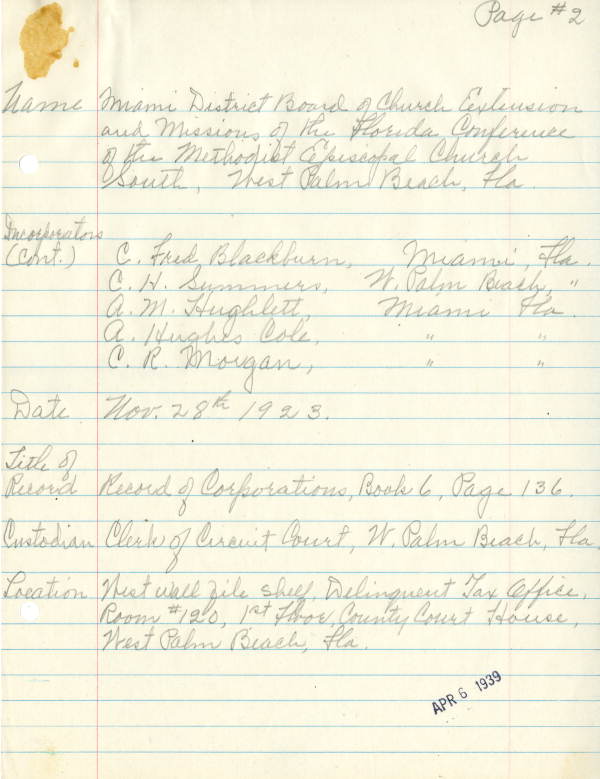 Page #2
Name Miami District Board of Church Extension
and Missions of the Florida Conference
of the Methodist Episcopal Church
South, West Palm Beach, Fla.
Incorporators
(Cont.) C. Fred Blackburn, Miami, Fla.
C. H. Summers, W. Palm Beach, "
A. M. Hughlett, Miami Fla.
A. Hughes Cole, " "
C. R. Morgan, " "
Date Nov. 28th 1923.
Title of
Record Record of Corporations, Book 6, Page 136.
Custodian Clerk of Circuit Court, W. Palm Beach, Fla.
Location West wall file shelf, Delinquent Tax Office,
Room #120, 1st Floor, County Court House,
West Palm Beach, Fla.
APR 6 1939